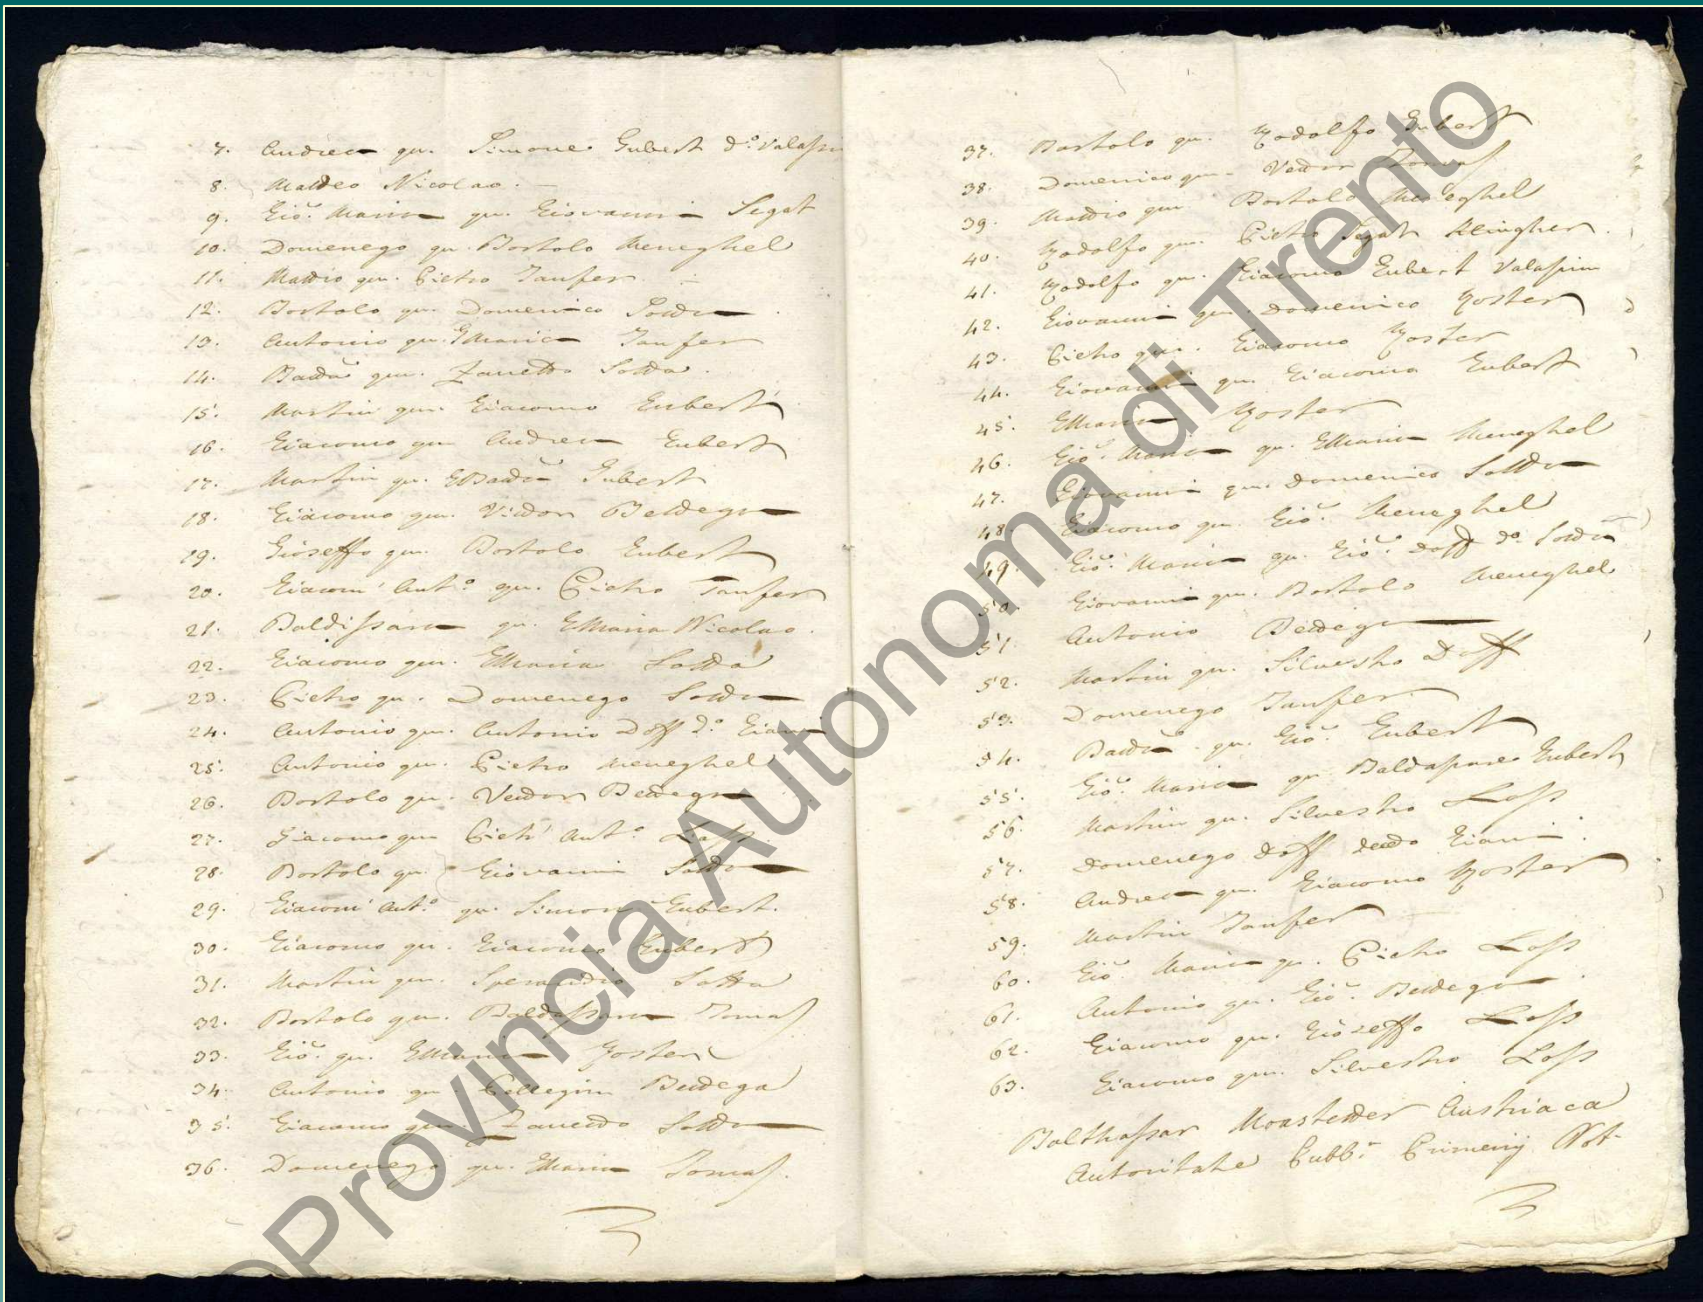 7. Andrea qu. Simone Gubert d.º Valassin
8. Matteo Nicolao.
9. Giõ. Maria qu. Giovanni Segat
10. Domenego qu. Bortolo Meneghel
11. Mattio qu. Pietro Taufer
12. Bortolo qu. Domenico Sotta
13. Antonio qu. GMaria Taufer
14. Battã qu. Zanetto Sotta.
15. Martin qu. Giacomo Gubert
16. Giacomo qu. Andrea Gubert
17. Martin qu. GBattã Gubert
18. Giacomo qu. Vittor Bettega
19. Gioseffo qu. Bortolo Gubert
20. Giacom' Ant.º qu. Pietro Taufer
21. Baldissara qu. GMaria Nicolao.
22. Giacomo qu. GMaria Sotta
23. Pietro qu. Domenego Sotta
24. Antonio qu. Antonio Doff d.º
25. Antonio qu. Pietro Meneghel
26. Bortolo qu. Vettor Bettega
27. Giacomo qu. Piet' Ant.º Loss
28. Bortolo qu. Giovanni Sotta
29. Giacom' Ant.º qu. Simon Gubert.
30. Giacomo qu. Giacomo Gubert
31. Martin qu. Sperandio Sotta
32. Bortolo qu. Baldassara Tomas
33. Giõ. qu. GMaria Zoster
34. Antonio qu. Pellegrin Bettega
35. Giacomo qu. Zanetto Sotta
36. Domenego qu. GMaria Tomas.
37. Bortolo qu. Rodolfo Gubert
38. Domenico qu. Vettor Tomas
39. Mattio qu. Bortolo Meneghel
40. Rodolfo qu. Pietro Segat
41. Rodolfo qu. Giacomo Gubert Valassin
42. Giovanni qu. Domenico Zoster
43. Pietro qu. Giacomo Zoster
44. Giovanni qu. Giacomo Gubert
45. GMaria Zoster
46. Giõ. Maria qu. GMaria Meneghel
47. Giovanni qu. Domenico Sotta
48. Giacomo qu. Giõ. Meneghel
49. Giõ. Maria qu. Giõ. Doff d.º Sotta
50. Giovanni qu. Bortolo Meneghel
51. Antonio Bettega
52. Martin qu. Silvestro Doff
53. Domenego Taufer.
54. Battã. qu. Giõ. Gubert
55. Giõ. Maria qu. Baldassare Gubert
56. Martin qu. Silvestro Loss
57. Domenego Doff detto
58. Andrea qu. Giacomo Zoster
59. Martin Taufer
60. Giõ. Maria qu. Pietro Loss
61. Antonio qu. Giõ. Bettega
62. Giacomo qu. Gioseffo Loss
63. Giacomo qu. Silvestro Loss
Balthassar Austriaca
Autoritate Pubb.s Primerij Not.
©Provincia Autonoma di Trento